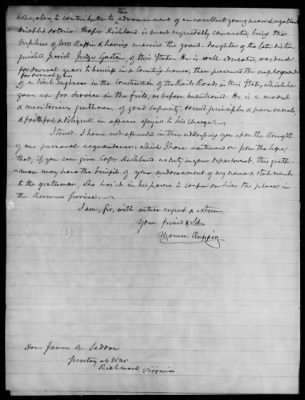 the
hope, also, to contribute to advancement of an excellent young man and gallant
disabled soldier. Capt. Richland is most respectably connected, being the
nephew of Mrs. Ruffin & having married the grand-daughter of the late distin-
guished jurist Judge Gaston, of this State. He is well educated, was bred
for several years to business in a counting house, then pursued the employment
for several yrs
of a Civil Engineer in the construction of the Rail Roads in this State, which he
gave up for service in the field, as before mentioned. He is a man &
a meritorious gentleman of good capacity, sound principles, & personal
& faithful & diligent in affairs given to his charge.
I trust I have not offended in thus addressing you upon the strength
of our personal acquaintance; which I have ventured on from the hope,
that, if you can give Capt. Richland no duty in your department, this gentle-
man may have the benefit of your endorsement of my name & statement
to the gentleman, who has it in his power to confer on him the place in
the Revenue service.
I am, Sir, with entire respect & esteem,
Your friend & Sevt
Thomas Ruffin
Hon: James A. Seddon
Secretary of War
Richmond Virginia